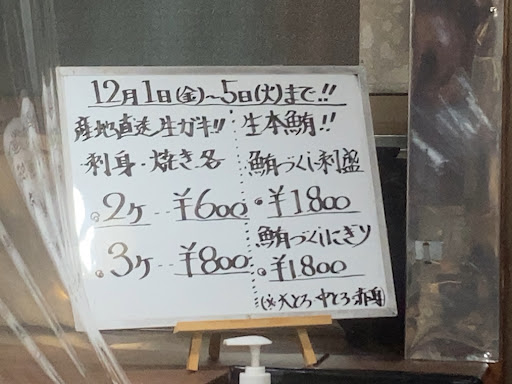 12月1日(金)～5日(火)まで!!
産地直送 生ガキ!!
刺身・焼き 各
・2ヶ…¥600
・3ヶ…¥800
生本鮪!!
鮪づくし刺盛
・¥1800
鮪づくしにぎり
・¥1800
(※大とろ 中とろ 赤身)